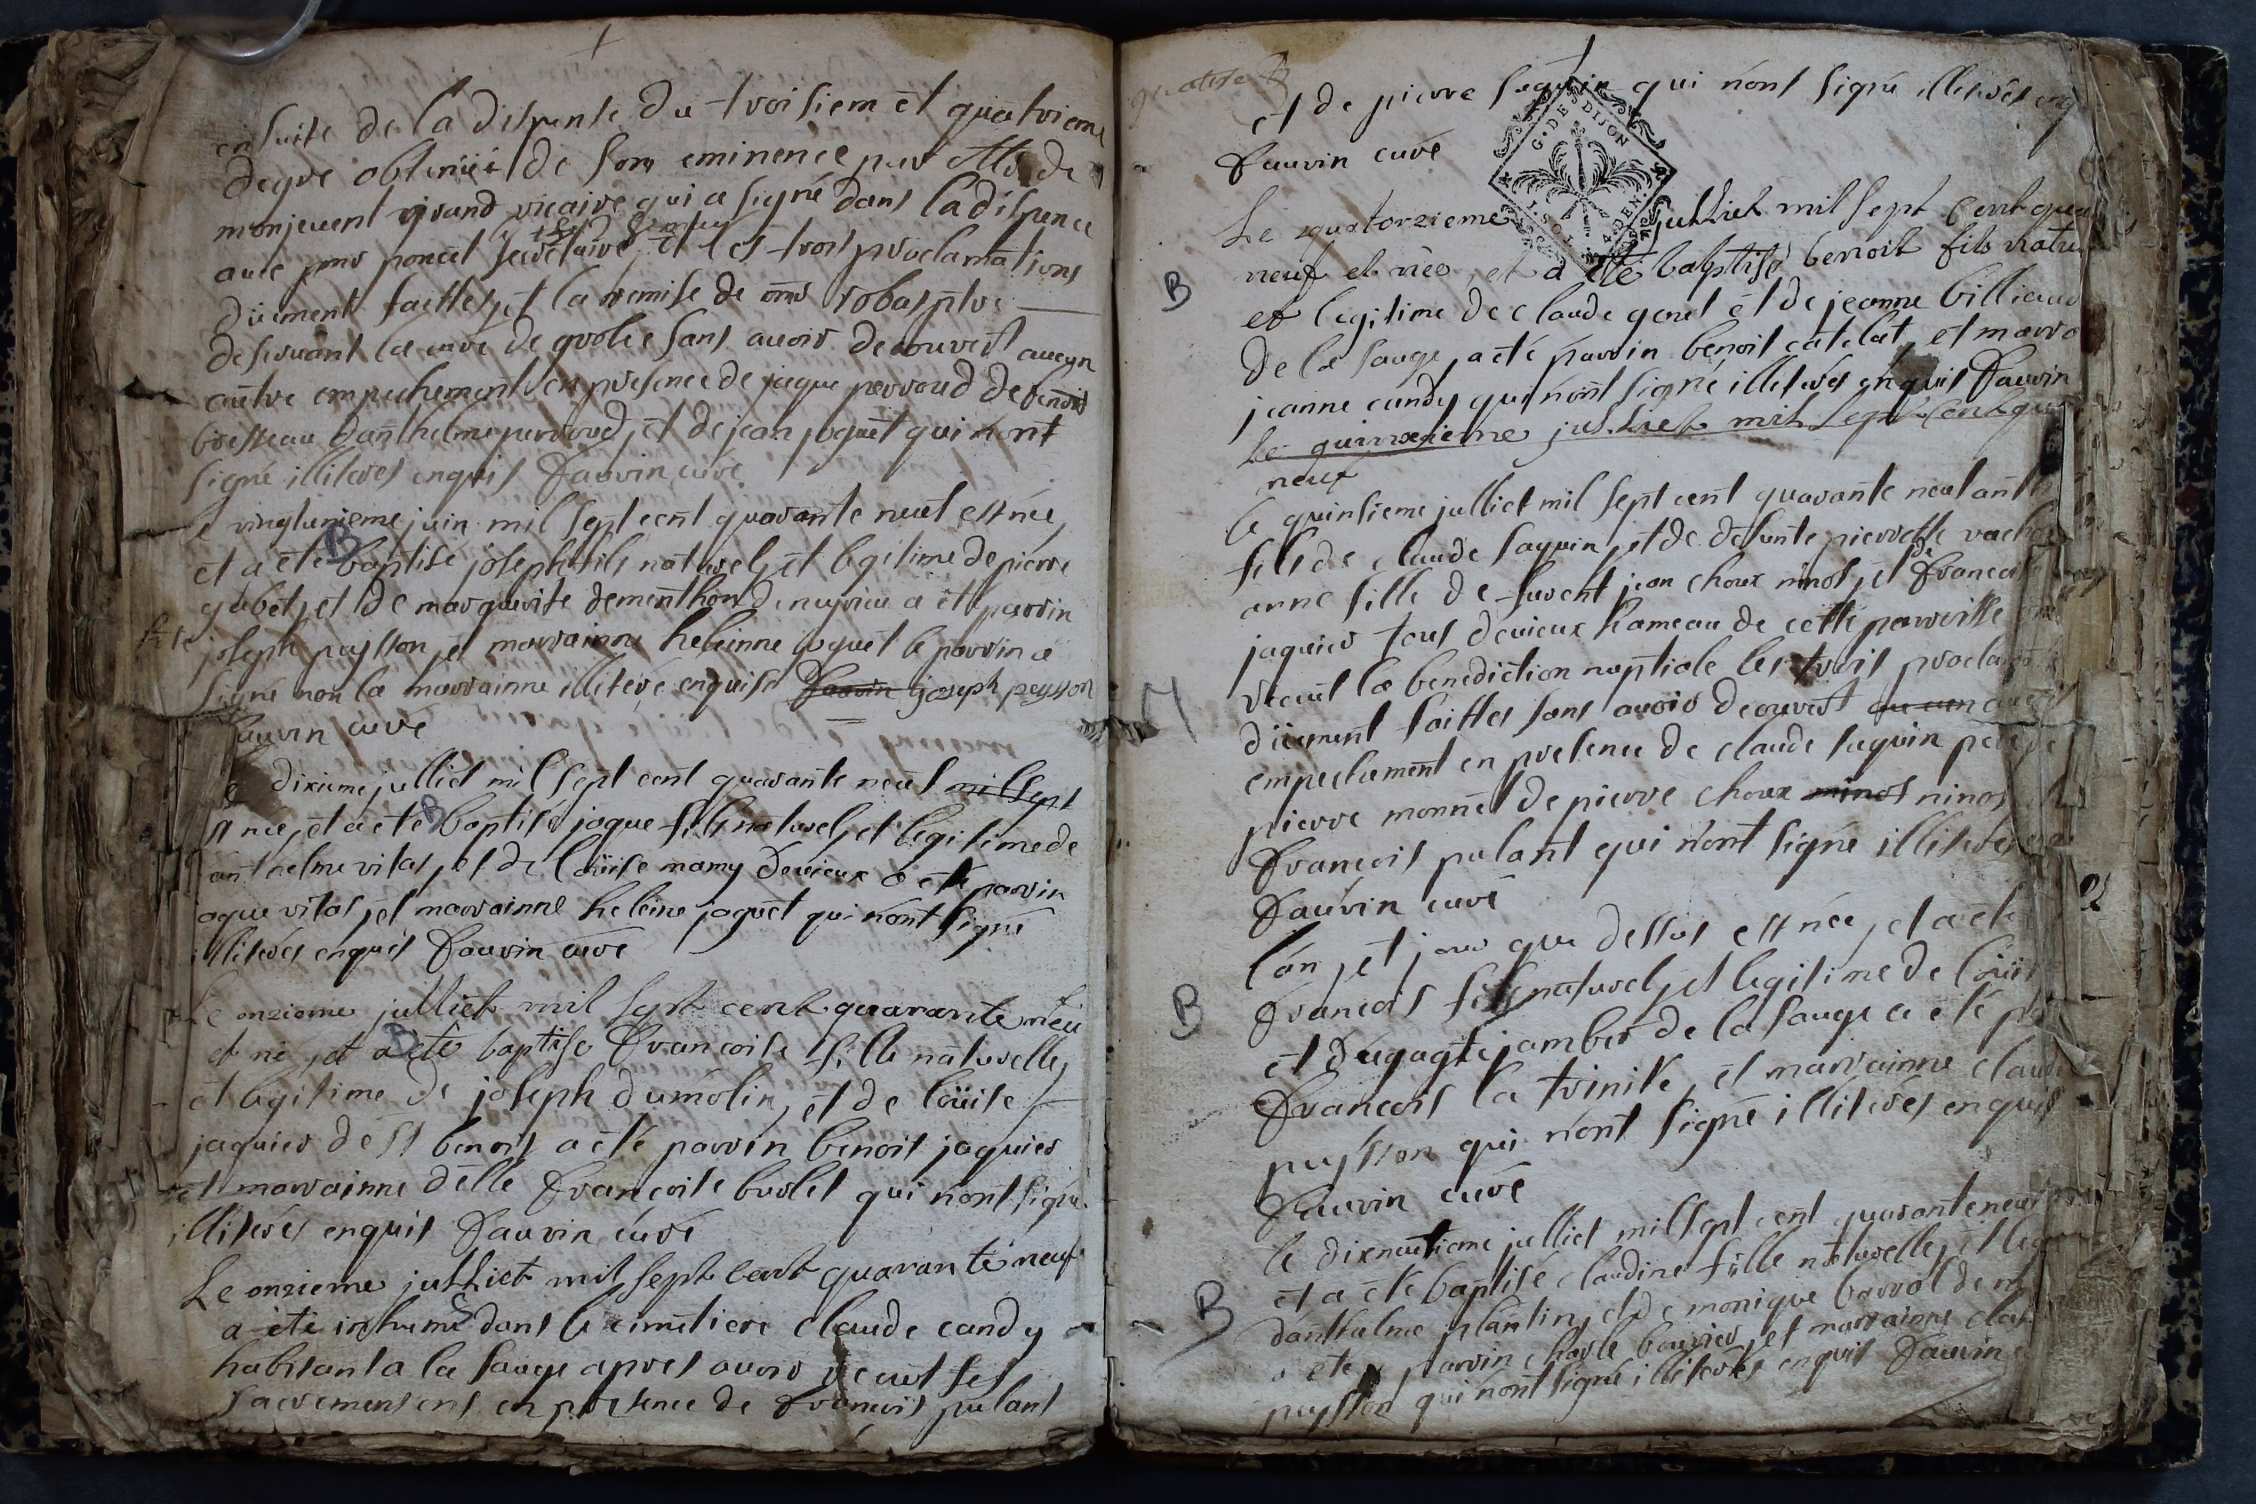 ensuite de la dispense du troisiem et quatrieme
degre obtenüe de son eminence par Mr de
monjouent grand vicaire qui a signé dans la dispence
avec
pour poncet secretaire, et les trois proclamations
düement faittes, et la remise de
deservant la cure de grolee sans avoir decouvert aucun
autre empechement en presence de jaque perroud de benoit
bresseau danthelme perroud, et de jean joguet qui n'ont
signé illiterés enquis Dauvin curé
le vingtunieme juin mil sept cent quarante neuf est née,
et a été baptisé joseph fils naturel, et legitime de pierre
gubet, et de marguerite dementhon a été parrin
joseph peysson, et marrainne heleinne joguet le parrin a
signé non la marrainne illiteré enquise Dauvin joseph peysson
Dauvin curé
Le dixieme julliet mil sept cent quarante neuf mil sept
est née, et a été baptisé jaque fils naturel, et legitime de
anthelme vitas, et de loüise mamy d'evieux a été parrin
jaque vitas, et marrainne heleine joguet qui n'ont signé
illiterés enquis Dauvin curé
Le onzieme julliet mil sept cent quarante neu
et né, et a été baptisé Francoise fille naturelle,
et legitime de joseph dumolin, et de loüise
jaquier de St benoit a été parrin benoit jaquier
et marrainne delle Francoise burlet qui n'ont signé
illiterés enquis Dauvin curé
Le onzieme julliet mil sept cent quarante neuf
a été inhumé dans le cimetiere claude candy
habitant a la sauge apres avoir recut ses
sacremens en presence de Francois pulant
quatorse B
et de pierre suquin qui n'ont signé illiterés enq
Dauvin curé
G. DES DIJON
1. SOL 4. DEN
Le quatorzieme julliet mil sept cent qua
B
neuf et née, et a été baptisé benoit fils natu
et legitime de claude genet et de jeanne billiard
de la sauge, a été parrin benoit catelat, et marra
jeanne candy qui n'ont signé illiterés enquis Dauvin
Le quinzieme julliet mil sept cent qua
neuf
le quinsieme julliet mil sept cent quarante neuf
fils de claude saquin, et de defunte pierrette vachon
anne fille de fuvent jean choux ninos, et de Francoise
jaquier tous d'evieux hameau de cette parroisse
M
receut la benediction nuptiale les trois proclamat
düement faittes sans avoir decouvert aucun
empechement en presence de claude saquin pere
pierre monnet de pierre choux minos ninos
Francois pulant qui n'ont signé illiterés
Dauvin curé
2
l'an, et jour que dessus est née, et a été
B
Francois fils naturel, et legitime de loüis
et jamber de la sauge a été
Francois la trinité, et marrainne claud
peysson qui n'ont signé illiterés enquis
Dauvin curé
le dixneufieme julliet mil sept cent quarante neuf
B
et a été baptisé claudine fille naturelle, et leg
danthelme plantin, et de monique barrol de
a été parrin charle bouvier, et marrainne clau
peysson qui n'ont signé illiterés enquis Dauvin